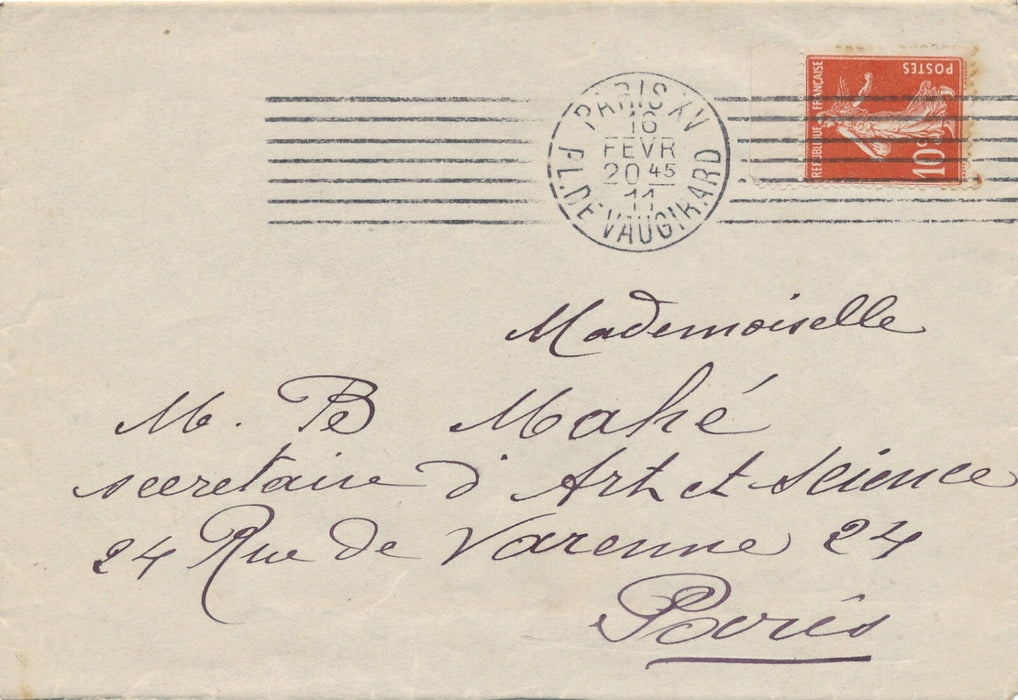 PARIS XV
18
FEVR
20 45
11
PL. DE VAUGIRARD
REPUBLIQUE FRANÇAISE
POSTES
10c
Mademoiselle
M. B Mahé
secretaire d'Art et Science
24 Rue de Varenne 24
Paris